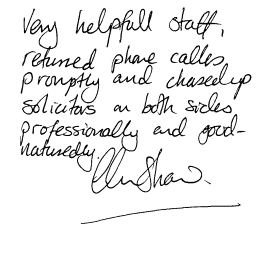 Very helpfull staff,
returned phone calls
promptly and chased up
solicitors on both sides
professionally and good-
naturedly.